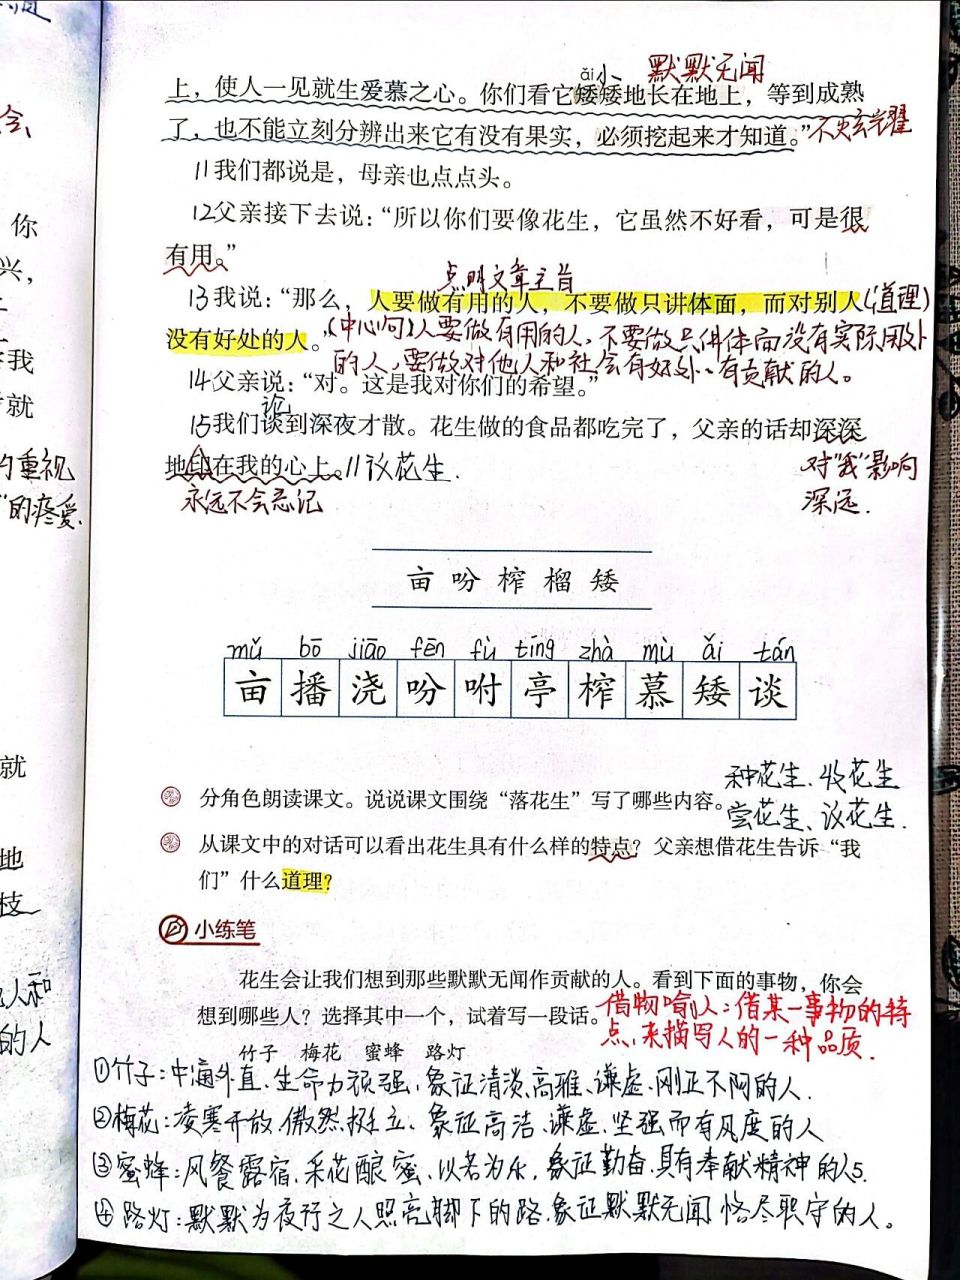 ǎi小 默默无闻
上，使人一见就生爱慕之心。你们看它矮矮地长在地上，等到成熟
了，也不能立刻分辨出来它有没有果实，必须挖起来才知道。”不炫耀
11我们都说是，母亲也点点头。
12父亲接下去说：“所以你们要像花生，它虽然不好看，可是很
有用。”
点明文章主旨
13我说：“那么，人要做有用的人，不要做只讲体面，而对别人(道理)
没有好处的人。”(中心句)人要做有用的人，不要做只讲体面没有实际用处
的人，要做对他人和社会有好处、有贡献的人。
14父亲说：“对。这是我对你们的希望。”
论
15我们谈到深夜才散。花生做的食品都吃完了，父亲的话却深深
地印在我的心上。//议花生.
对“我”影响
永远不会忘记
深远.
亩吩榨榴矮
mǔ bō jiāo fēn fù tíng zhà mù ǎi tán
亩播浇吩咐亭榨慕矮谈
种花生、收花生
分角色朗读课文。说说课文围绕“落花生”写了哪些内容。
尝花生、议花生.
从课文中的对话可以看出花生具有什么样的特点？父亲想借花生告诉“我
们”什么道理？
小练笔
花生会让我们想到那些默默无闻作贡献的人。看到下面的事物，你会
想到哪些人？选择其中一个，试着写一段话。
借物喻人：借某一事物的特
点，来描写人的一种品质.
竹子 梅花 蜜蜂 路灯
①竹子：中通外直、生命力顽强，象征清淡、高雅、谦虚、刚正不阿的人.
②梅花：凌寒开放、傲然挺立、象征高洁、谦虚、坚强而有风度的人
③蜜蜂：风餐露宿、采花酿蜜、以苦为乐，象征勤奋、具有奉献精神的人.
④路灯：默默为夜行之人照亮脚下的路、象征默默无闻恪尽职守的人。
你
兴，
我
就
的重视
”的疼爱.
就
地
枝
人和
的人